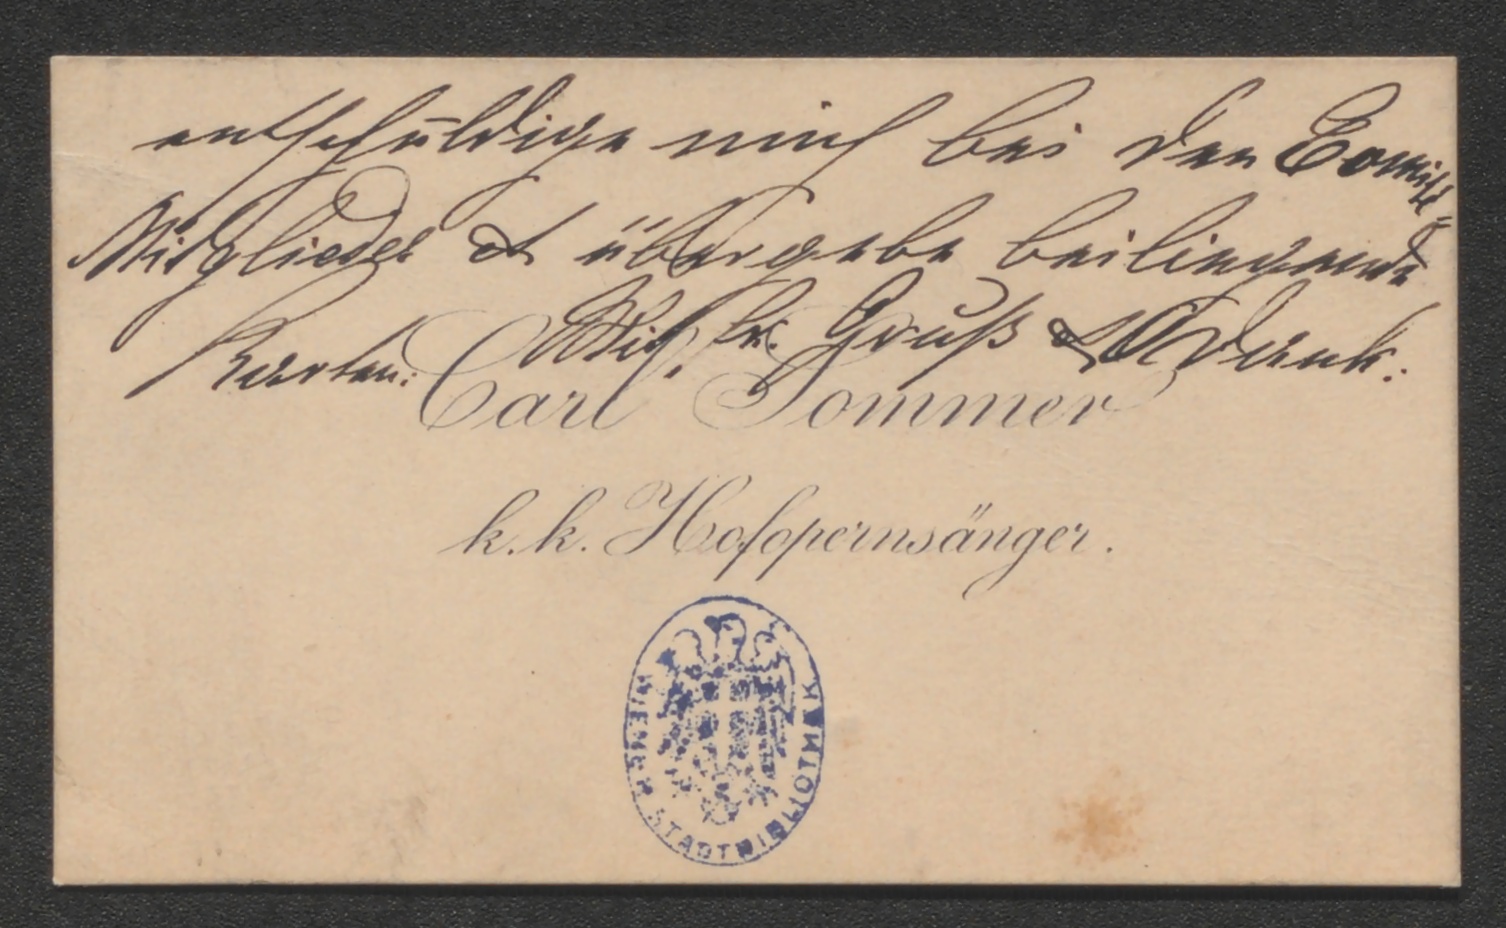 entschuldige mich bei den Comité=
Mitglieder & übergebe beiliegende
Karten. Mit br. Gruß & Dank.
Carl Sommer
k. k. Hofopernsänger.
WIENER STADTBIBLIOTHEK